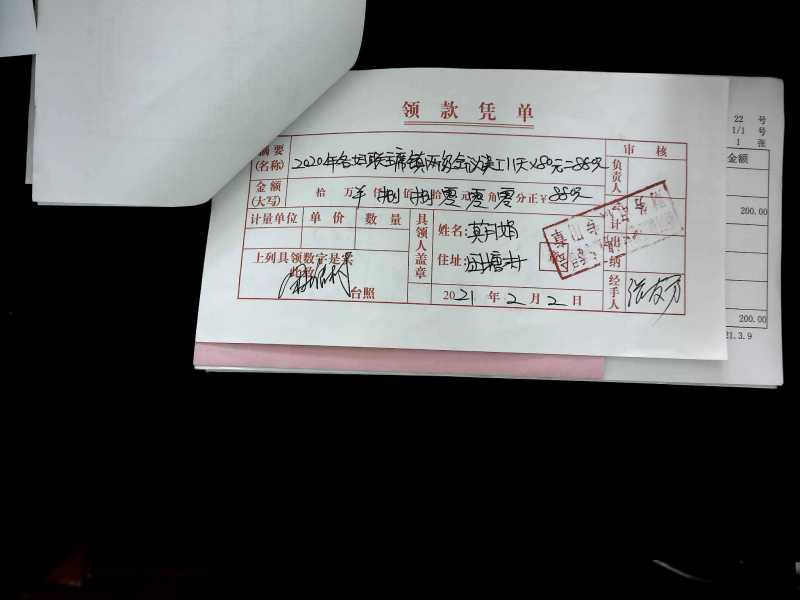 22 号
1/1 号
1 张
金额
200.00
200.00
21.3.9
领款凭单
摘要
(名称)
2020年 联主席镇 会议误工11天×80元=880元
审核
负责人
金额
(大写)
拾 万 仟 捌 佰 捌 拾 零 元 零 角 零 分正 ¥ 880元
计量单位 单价 数量
具领人盖章
姓名:莫月娟
住址: 塘村
会计
出纳
上列具领数字是实
此致
台照
2021 年 2 月 2 日
经手人
张友万